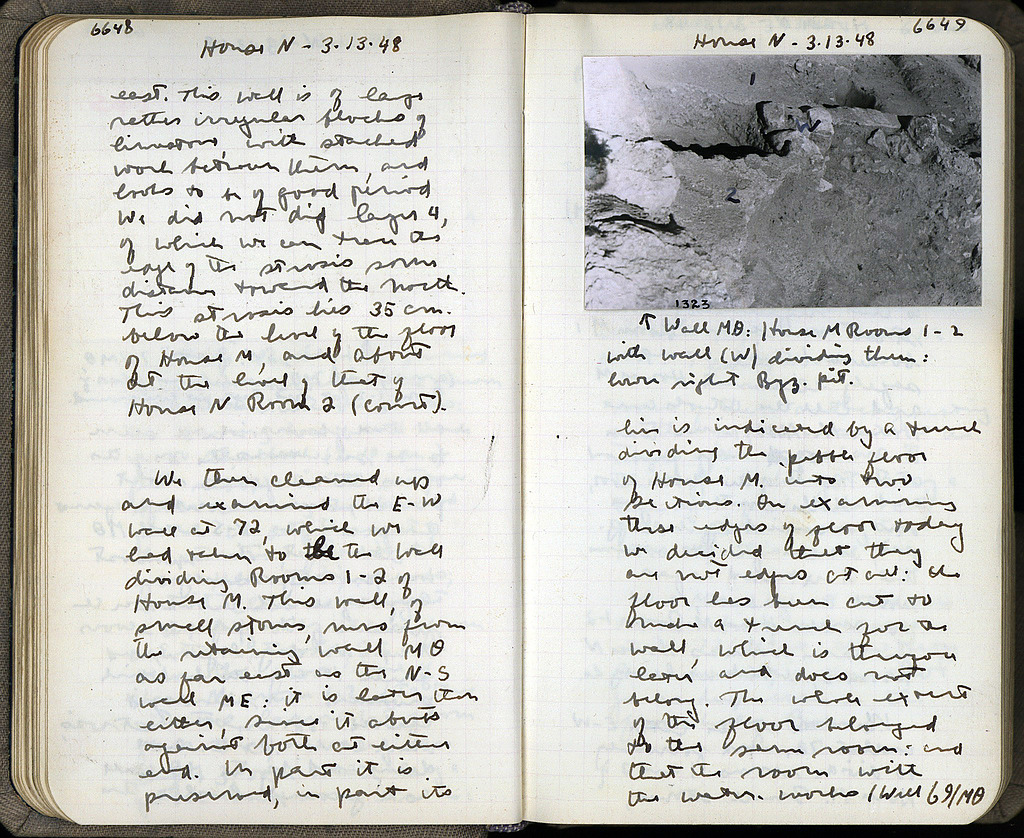 6648
House N - 3.13.48
east. This wall is of large
rather irregular blocks of
limestone, with stacked
work between them, and
looks to be of good period
We did not dig layer 4,
of which we can trace the
edge of the strosis some
distance toward the north.
This strosis lies 35 cm.
below the level of the floor
of House M, and about
at the level of that of
House N Room 2 (court).
We then cleaned up
and examined the E-W
wall at 72, which we
had taken to be the wall
dividing Rooms 1-2 of
House M. This wall, of
small stones, runs from
the retaining wall MΘ
as far east as the N-S
wall ME: it is later than
either, since it abuts
against both at either
end. In part it is
preserved, in part its
6649
House N - 3.13.48
1
W
2
1323
↑ Wall MΘ: House M Rooms 1-2
with wall (W) dividing them:
lower right Byz. pit.
line is indicated by a trench
dividing the pebble floor
of House M. into two
sections. On examining
these edges of floor today
we decided that they
are not edges at all: the
floor has been cut to
make a trench for the
wall, which is therefore
later and does not
belong. The whole extent
of the floor belonged
to the same room: and
that the room with
the water-works (Wall 69/MΘ